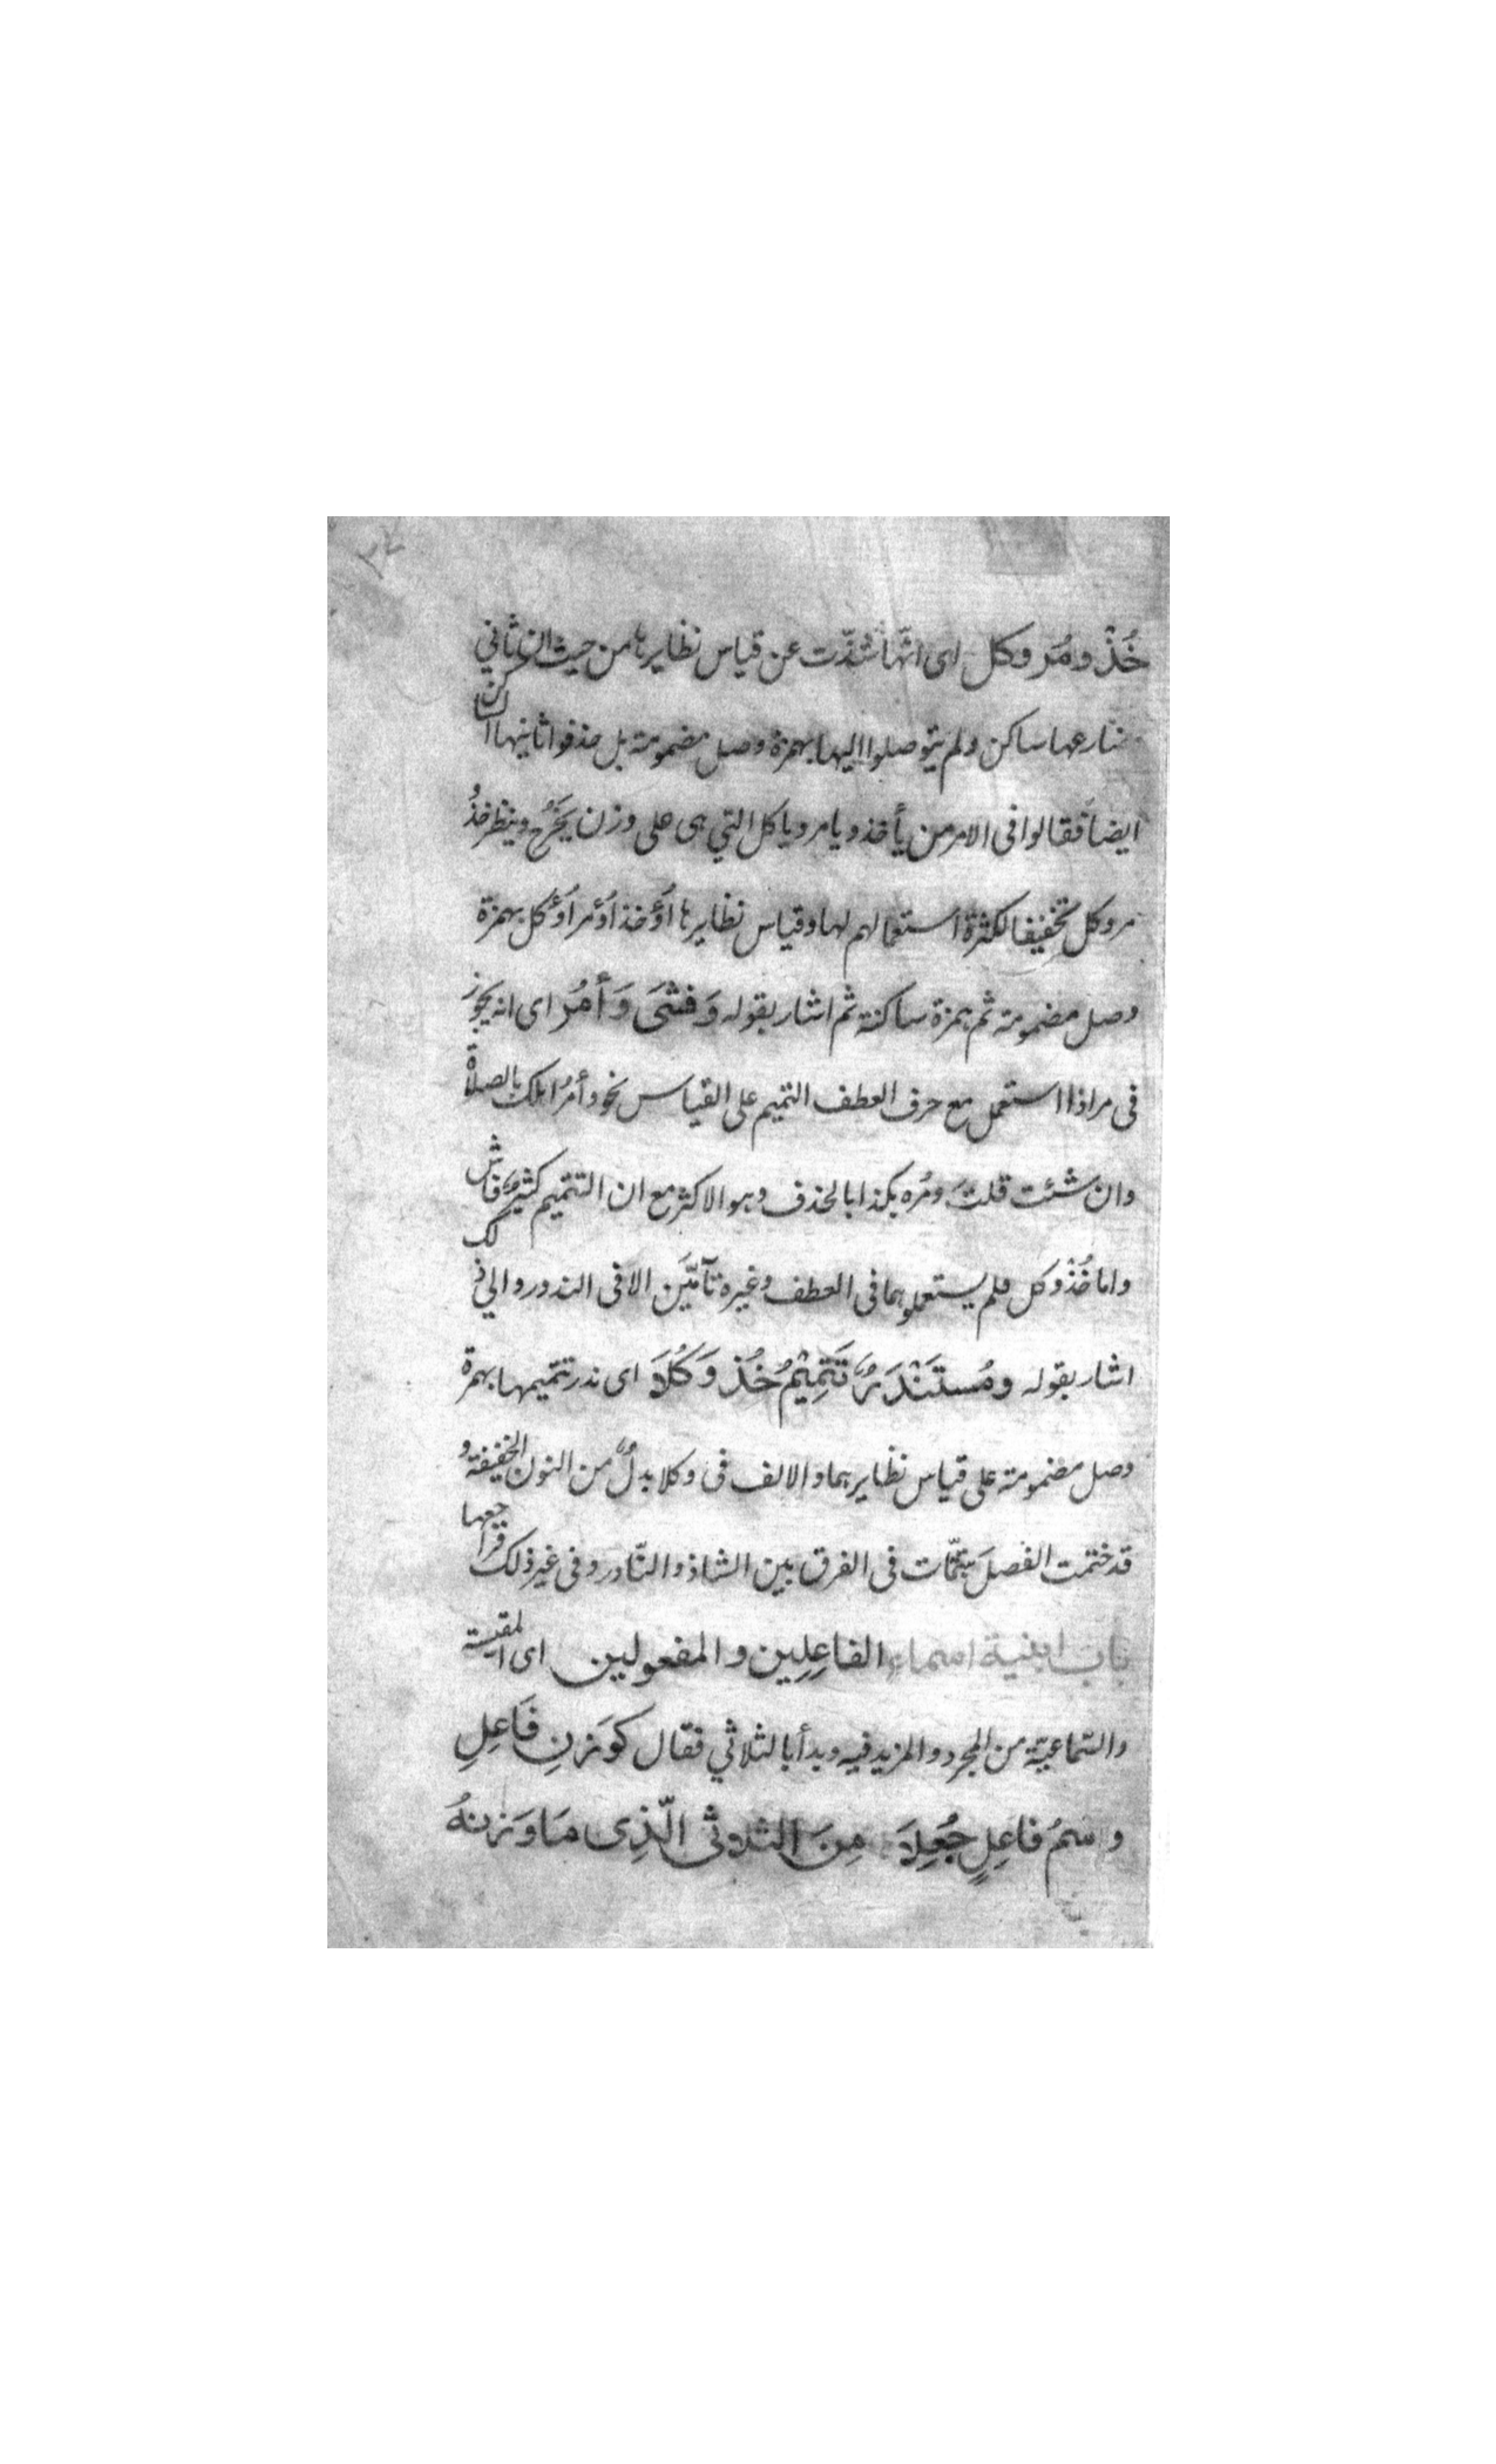 خُذْ ومُر وكل اى انّها شذّت عن قياس نظايرها من حيث ان ثانى
مضارعها ساكن ولم يتوصلوا اليها بهمزة وصل مضمومة بل حذفوا ثانيها الساكن
ايضاً فقالوا فى الامر من يأخذ ويامر وياكل التي هى على وزن يَخْرُج وينظر خُذْ و
مر وكل تخفيفا لكثرة استعمالهم لها وقياس نظايرها اُؤْخذ اُؤْمر اُؤْكل بهمزة
وصل مضمومة ثم بهمزة ساكنة ثم اشار بقوله وَفَشَى وَأمُر اى انه يجوز
فى مر اذا استعمل مع حرف العطف التتميم على القياس نحو وأمُر اهلك بالصلاة
وان شئت قلتَ ومُره بكذا بالحذف وهو الاكثر مع ان التتميم كثيرٌ فاش
واما خُذْ وكل فلم يستعملوهما فى العطف وغيره تآمَّين الا فى الندور والى ذلك
اشار بقوله ومُستَنْدَرٌ تَتمِيْمُ خُذ وَكُلَا اى ندر تتميمها بهمزة
وصل مضمومة على قياس نظايرهما والالف فى وكلا بدلٌ من النون الخفيفة و
قد ختمت الفصلَ بتتمّات فى الفرق بين الشاذ والنّادر وفى غير ذلك فراجعها
باب ابنية اسماء الفاعِلِين والمفعولين اى المقيسة
والسّماعيّة من المجرد والمزيد فيه وبدأ بالثلاثي فقال كوَزنِ فَاعِلِ
واسمُ فاعِلٍ جُعِلاَ مِنَ الثلاثى الّذِى مَا وَزنهُ